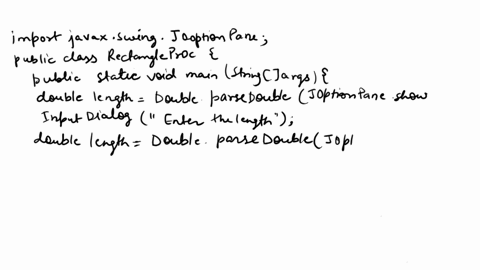 import javax.swing.JOptionPane;
public class RectangleProc {
public static void main (String[]args) {
double length = Double.parseDouble (JOptionPane.show
InputDialog ("Enter the length");
double length = Double.parseDouble(JOpt